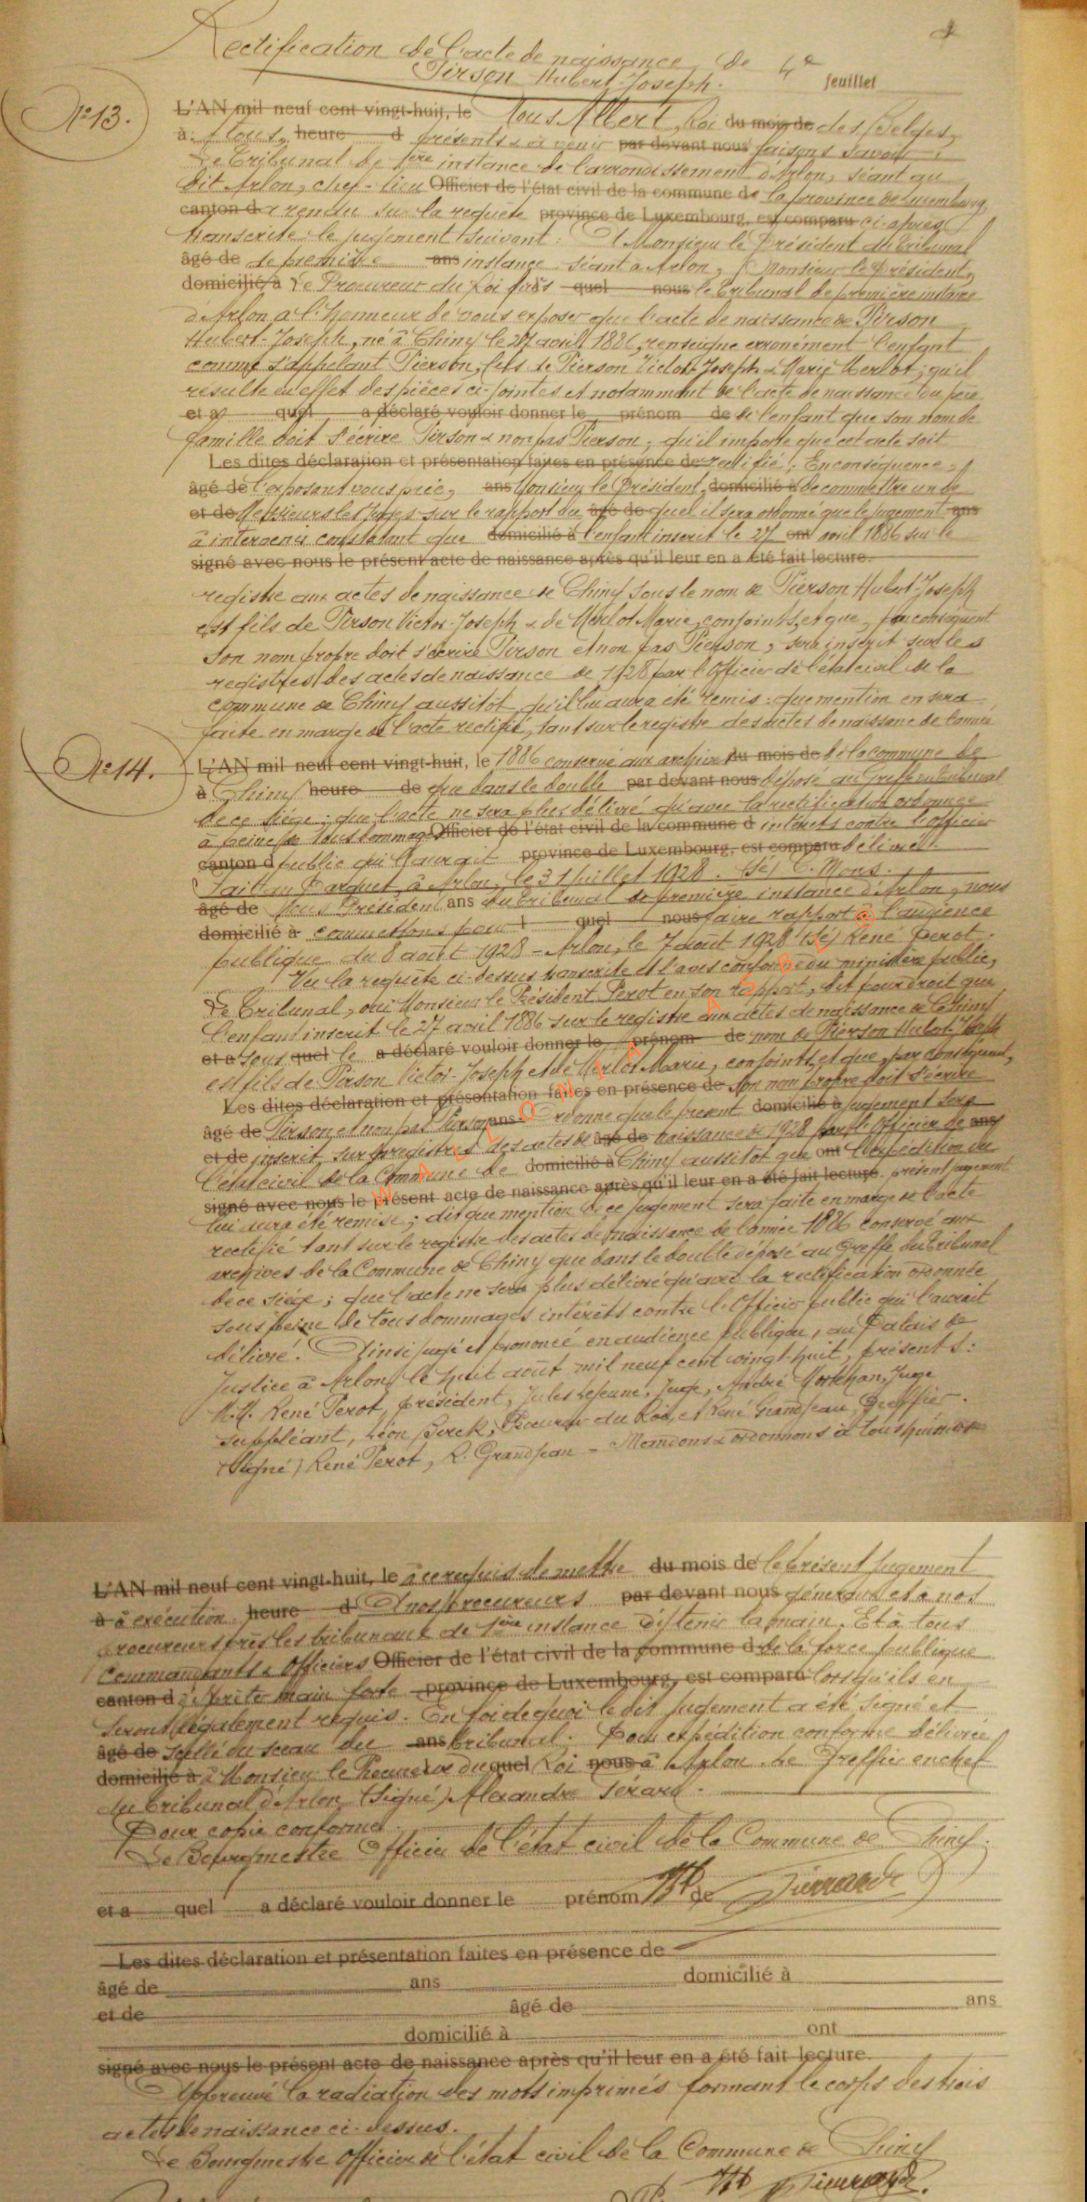 Rectification de l'acte de naissance de 4e feuillet
Pirson Hubert-Joseph.
N° 13.
L'AN mil neuf cent vingt-huit, le Nous Albert, Roi du mois de des Belges,
à: Tous, heure d présents & à venir par devant nous faisons savoir:
Le Tribunal de 1ère instance de l'arrondissement d'Arlon, séant au
dit Arlon, chef-lieu Officier de l'état civil de la commune de la province de Luxembourg,
canton d a rendu sur la requête province de Luxembourg, est comparu ci-après
transcrite le jugement suivant: A Monsieur le Président du tribunal
âgé de de première ans instance séant à Arlon, Monsieur le Président,
domicilié à Le Procureur du Roi près quel nous le tribunal de première instance
d'Arlon a l'honneur de vous exposer que l'acte de naissance de Pirson
Hubert-Joseph, né à Chiny le 27 avril 1886, renseigne erronément l'enfant
comme s'appelant Pierson, fils de Pierson Victor-Joseph & Marie Merlot; qu'il
résulte en effet des pièces ci-jointes et notamment de l'acte de naissance du père
et a quel a déclaré vouloir donner le prénom de de l'enfant que son nom de
famille doit s'écrire Pirson & non pas Pierson; qu'il importe que cet acte soit
Les dites déclaration et présentation faites en présence de rectifié; En conséquence,
âgé de l'exposant vous prie, ans Monsieur le Président, domicilié à de commettre un de
et de Messieurs les Juges sur le rapport du âgé de quel il sera ordonné que le jugement ans
à intervenir constatant que domicilié à l'enfant inscrit le 27 ont avril 1886 sur le
signé avec nous le présent acte de naissance après qu'il leur en a été fait lecture.
registre aux actes de naissance de Chiny sous le nom de Pierson Hubert-Joseph
est fils de Pirson Victor-Joseph & de Merlot Marie, conjoints, et que, par conséquent
son nom propre doit s'écrire Pirson et non pas Pierson, sera inscrit sur les
registres des actes de naissance de 1928 par l'Officier de l'état civil de la
commune de Chiny aussitôt qu'il lui aura été remis: que mention en sera
faite en marge de l'acte rectifié, tant sur le registre des actes de naissance de l'année
N° 14.
L'AN mil neuf cent vingt-huit, le 1886 conservé aux archives du mois de de la commune de
à Chiny heure de que dans le double par devant nous déposé au greffe du tribunal
de ce siège; que l'acte ne sera plus délivré qu'avec la rectification ordonnée
à peine de tous dommages Officier de l'état civil de la commune d intérêts contre l'officier
canton d public qui l'aurait province de Luxembourg, est comparu délivré.
Fait au Parquet, à Arlon, le 31 juillet 1928. (Sé) C. Mons.
âgé de Nous Président ans du tribunal de première instance d'Arlon, nous
domicilié à commettons pour t quel nous faire rapport à l'audience
publique du 8 août 1928 - Arlon, le 7 août 1928 (Sé) René Perot.
Vu la requête ci-dessus transcrite et l'avis conforme du ministère public,
Le Tribunal, ouï Monsieur le Président Perot en son rapport, dit pour droit que
l'enfant inscrit le 27 avril 1886 sur le registre aux actes de naissance de Chiny
et a sous quel le a déclaré vouloir donner le prénom de nom de Pierson Hubert-Joseph
est fils de Pirson Victor-Joseph et de Merlot Marie, conjoints, et que, par conséquent,
Les dites déclaration et présentation faites en présence de son nom propre doit s'écrire
âgé de Pirson et non pas Pierson ans Ordonne que le présent domicilié à jugement sera
et de inscrit sur les registres des actes de âgé de naissance de 1928 par l'Officier de ans
l'état civil de la Commune de domicilié à Chiny aussitôt que ont l'expédition du
signé avec nous le présent acte de naissance après qu'il leur en a été fait lecture. présent jugement
lui aura été remise; dit que mention de ce jugement sera faite en marge de l'acte
rectifié tant sur le registre des actes de naissance de l'année 1886 conservé aux
archives de la Commune de Chiny que dans le double déposé au Greffe du Tribunal
de ce siège; que l'acte ne sera plus délivré qu'avec la rectification ordonnée
sous peine de tous dommages intérêts contre l'Officier public qui l'aurait
délivré. Ainsi jugé et prononcé en audience publique, au Palais de
Justice à Arlon, le huit août mil neuf cent vingt-huit, présents:
M.M. René Perot, président, Jules Lejeune, Juge, André Juge
suppléant, Léon Procureur du Roi, et René Grandjean, Greffier.
(Signé) René Perot, R. Grandjean - Mandons & ordonnons à tous huissiers
L'AN mil neuf cent vingt-huit, le à ce requis de mettre du mois de le présent jugement
à à exécution heure d A nos procureurs par devant nous généraux et à nos
procureurs près les tribunaux de 1ère instance d'y tenir la main. Et à tous
Commandants & Officiers Officier de l'état civil de la commune d de la force publique
canton d d'y prêter main forte province de Luxembourg, est comparu lorsqu'ils en
seront légalement requis. En foi de quoi le dit jugement a été signé et
âgé de scellé du sceau du ans tribunal. Pour expédition conforme délivrée
domicilié à à Monsieur le Procureur du quel Roi nous à Arlon. Le Greffier en chef
du tribunal d'Arlon (Signé) Alexandre Gérard.
Pour copie conforme:
Le Bourgmestre Officier de l'état civil de la Commune de Chiny.
et a quel a déclaré vouloir donner le prénom de
Les dites déclaration et présentation faites en présence de
âgé de ans domicilié à
et de âgé de ans
domicilié à ont
signé avec nous le présent acte de naissance après qu'il leur en a été fait lecture.
Approuvé la radiation des mots imprimés formant le corps des trois
actes de naissance ci-dessus.
Le Bourgmestre Officier de l'état civil de la Commune de Chiny